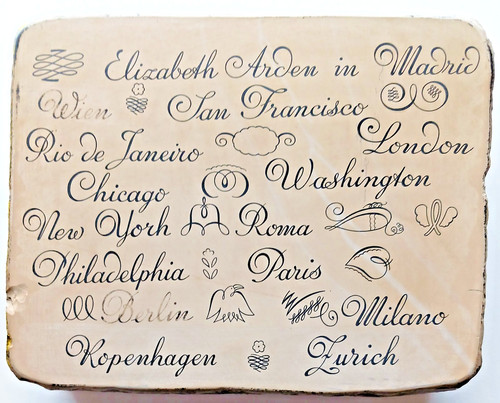 Elizabeth Arden in Madrid
Wien San Francisco
Rio de Janeiro London
Chicago Washington
New York Roma
Philadelphia Paris
Berlin Milano
Kopenhagen Zurich